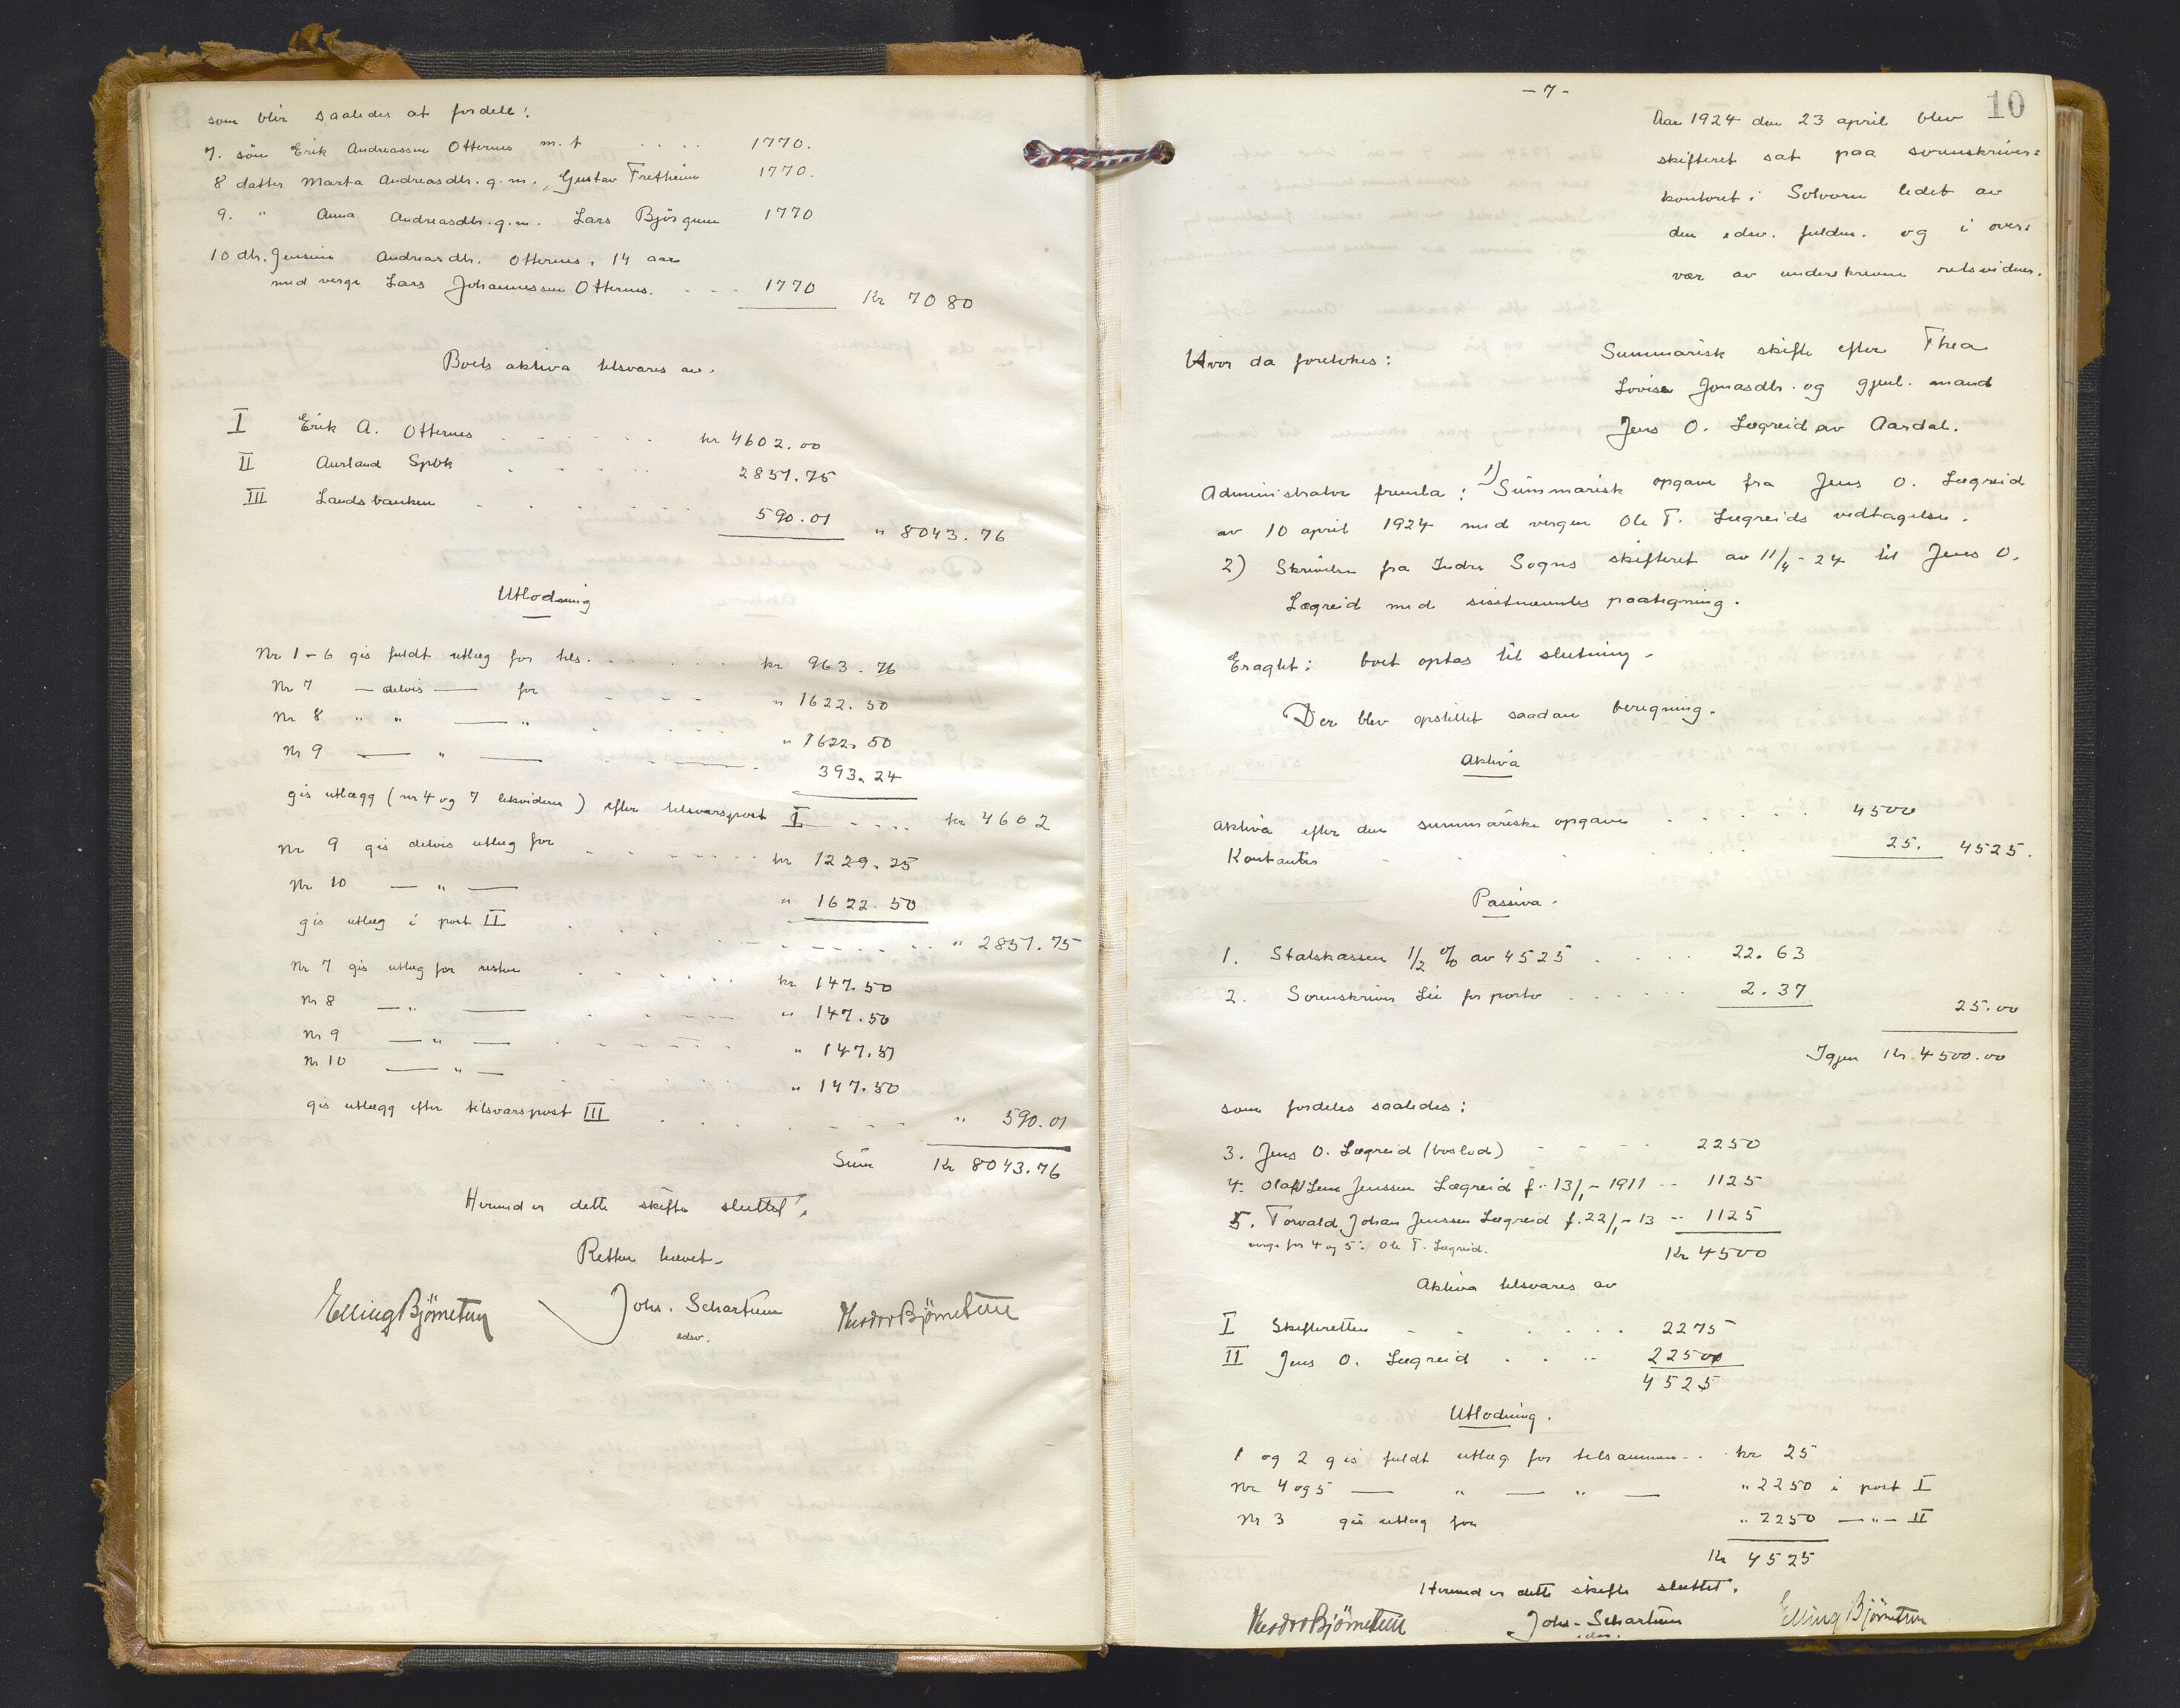 som blir saaledes at fordele:
7. sön Erik Andreassen Otternes m. f. . . . . 1770.
8 datter Marta Andreasdtr. g. m. Gustav Fretheim 1770.
9. " Anna Andreasdtr. g. m. Lars Bjørgum 1770
10 dtr. Jensine Andreasdtr. Otternes, 14 aar
med verge Lars Johannessen Otternes. - - - 1770 Kr 7080
Boets aktiva tilsvares av.
I Erik A. Otternes . . . . . . kr 4602.00
II Aurland Spbk . . . . 2851.75
III Landsbanken . . . . . 590.01 " 8043.76
Utlodning
Nr 1-6 gis fuldt utlæg for tils. . . . . . kr 963.76
Nr 7 — delvis — for - - - - " 1622.50
Nr 8 " " — " . . . . " 1622.50
Nr 9 — " — . . — . 393.24
gis utlægg (nr 4 og 7 likviderer) efter tilsvarspost I . . . . kr 4602
Nr 9 gis delvis utlæg for - - - - - kr 1229.25
Nr 10 — " — " 1622.50
gis utlæg i post II . . . . - - - - - - " 2851.75
Nr 7 gis utlæg for resten . . . . . kr 147.50
Nr 8 — " — . . - - - " 147.50
Nr 9 — " — . . - - - " 147.51
Nr 10 — " — " 147.50
gis utlægg efter tilsvarspost III . . . - - - " 590.01
Sum Kr 8043.76
Hermed er dette skifte sluttet.
Retten hævet.
Elling Bjørnetun Johs. Schartum Theodor Bjørnetun
edsv.
- 7 -
10
Aar 1924 den 23 april blev
skifteret sat paa sorenskriver=
kontoret i Solvorn ledet av
den edsv. fuldm. og i over=
vær av underskrevne retsvidner.
Hvor da foretokes:
Summarisk skifte efter Thea
Lovise Jonasdtr. og gjenl. mand
Jens O. Lægreid av Aardal.
Administrator fremla: 1) Summarisk opgave fra Jens O. Lægreid
av 10 april 1924 med vergen Ole T. Lægreids vedtagelse.
2) Skrivelse fra Indre Sogns skifteret av 11/4-24 til Jens O.
Lægreid med sisstnævntes paategning.
Eragtet: boet optas til slutning.
Der blev opstillet saadan beregning.
Aktiva
Aktiva efter den summariske opgave . . . . . 4500
Kontanter - . . . . 25. 4525.
Passiva.
1. Statskassen 1/2 % av 4525 . . . . 22.63
2. Sorenskriver Lie for porto . . . . . . 2.37
25.00
Igjen Kr 4500.00
som fordeles saaledes:
3. Jens O. Lægreid (boslod) - - - - 2250
4. Olaf Lem Jenssen Lægreid f. 13/1-1911 -- 1125
5. Torvald Johan Jenssen Lægreid f. 22/1-13 -- 1125
verge for 4 og 5: Ole T. Lægreid.
Kr 4500
Aktiva tilsvares av
I Skifteretten - - . . . . 2275
II Jens O. Lægreid . . -- 2250
4525
Utlodning.
1 og 2 gis fuldt utlæg for tilsammen . . kr 25
Nr 4 og 5 — " — " — " 2250 i post I
Nr 3 gis utlæg for " 2250 — " — II
Kr 4525
Hermed er dette skifte sluttet.
Theodor Bjørnetun Johs. Schartum Elling Bjørnetun
edsv.